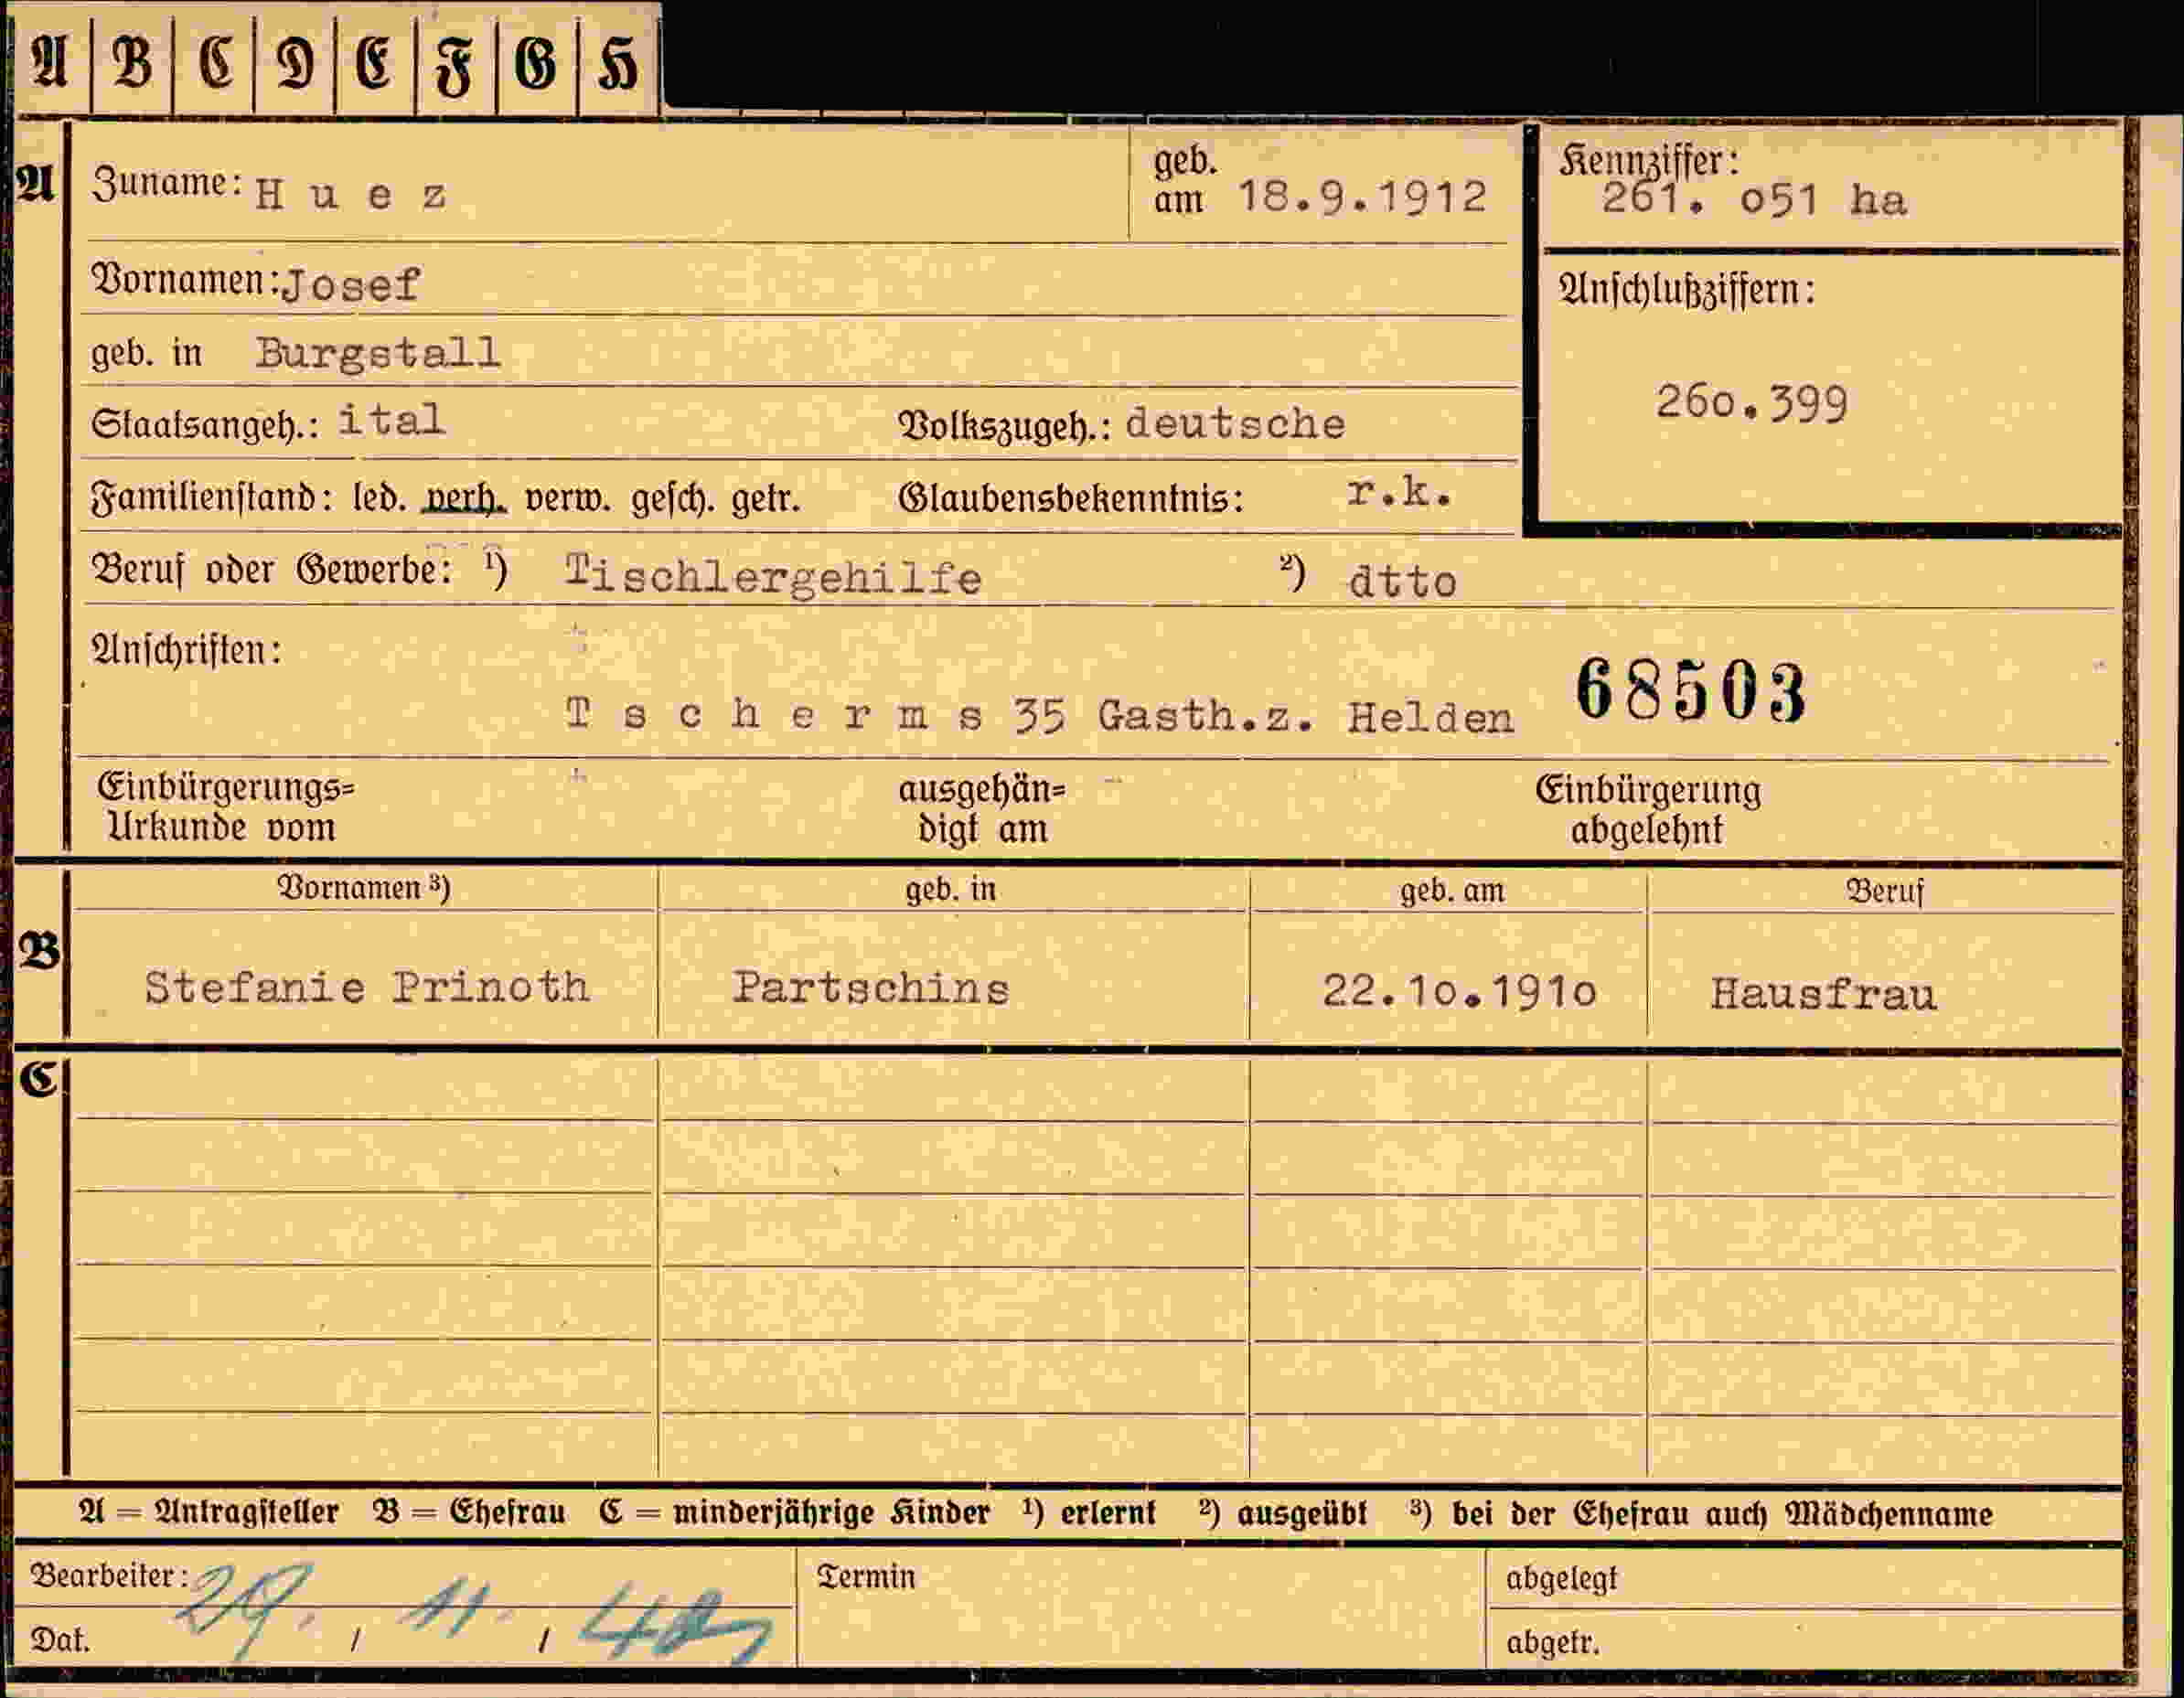 A B C D E F G H
A Zuname: Huez geb. am 18.9.1912 Kennziffer: 261. o51 ha
Vornamen: Josef Anschlußziffern:
geb. in Burgstall 26o.399
Staatsangeh.: ital Volkszugeh.: deutsche
Familienstand: led. verh. verw. gesch. getr. Glaubensbekenntnis: r.k.
Beruf oder Gewerbe: ¹) Tischlergehilfe ²) dtto
Anschriften: 68503
Tscherms 35 Gasth.z. Helden
Einbürgerungs= ausgehän= Einbürgerung
Urkunde vom digt am abgelehnt
Vornamen ³) geb. in geb. am Beruf
B
Stefanie Prinoth Partschins 22.1o.191o Hausfrau
C
A = Antragsteller B = Ehefrau C = minderjährige Kinder ¹) erlernt ²) ausgeübt ³) bei der Ehefrau auch Mädchenname
Bearbeiter: Termin abgelegt
Dat. 29. / 11. / abgetr.